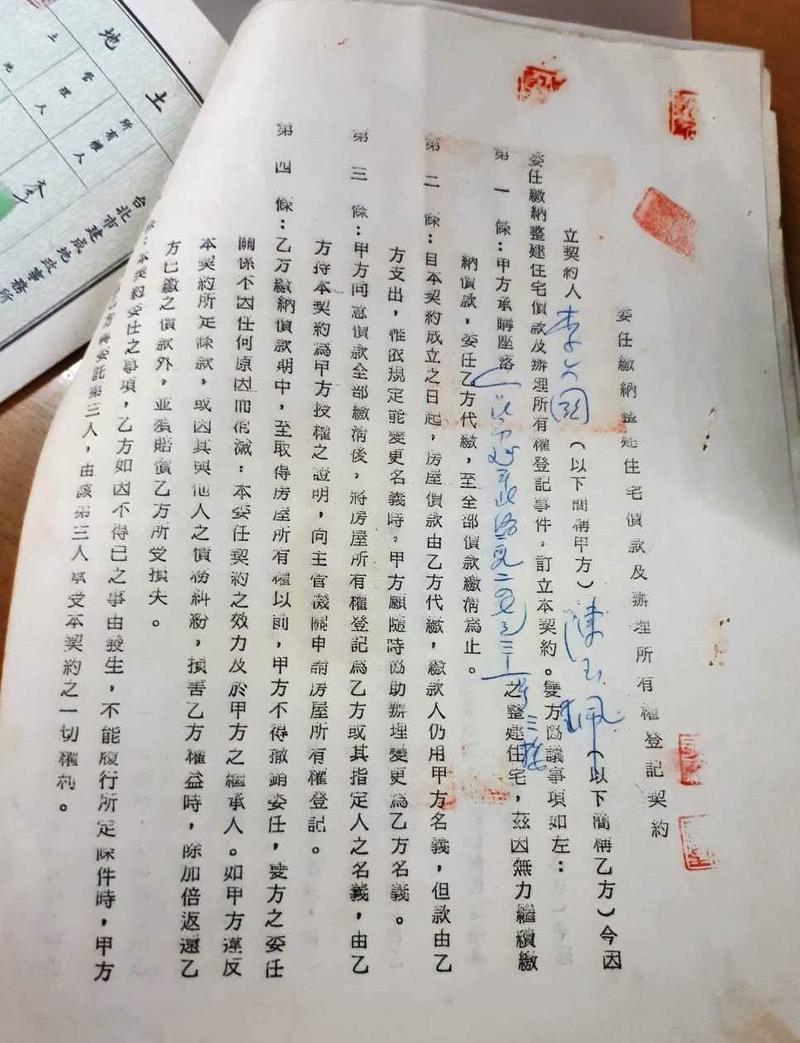 委任繳納整建住宅價款及辦理所有權登記契約
立契約人李 （以下簡稱甲方）陳玉珮（以下簡稱乙方）今因
委任繳納整建住宅價款及辦理所有權登記事件，訂立本契約。雙方協議事項如左：
第一條：甲方承購座落 之整建住宅，茲因無力繼續繳
納價款，委任乙方代繳，至全部價款繳清為止。
第二條：自本契約成立之日起，房屋價款由乙方代繳，繳款人仍用甲方名義，但款由乙
方支出，惟依規定能變更名義時，甲方願隨時協助辦理變更為乙方名義。
第三條：甲方同意價款全部繳清後，將房屋所有權登記為乙方或其指定人之名義，由乙
方持本契約為甲方授權之證明，向主官機關申請房屋所有權登記。
第四條：乙方繳納價款期中，至取得房屋所有權以前，甲方不得撤銷委任，雙方之委任
關係不因任何原因而消滅：本委任契約之效力及於甲方之繼承人。如甲方違反
本契約所定條款，或因其與他人之債務糾紛，損害乙方權益時，除加倍返還乙
方已繳之價款外，並須賠償乙方所受損失。
條：本契約委任之事項，乙方如因不得已之事由發生，不能履行所定條件時，甲方
委託第三人，由該第三人承受本契約之一切權利。
土地
所有權人
管理人
李
台北市建成地政事務所